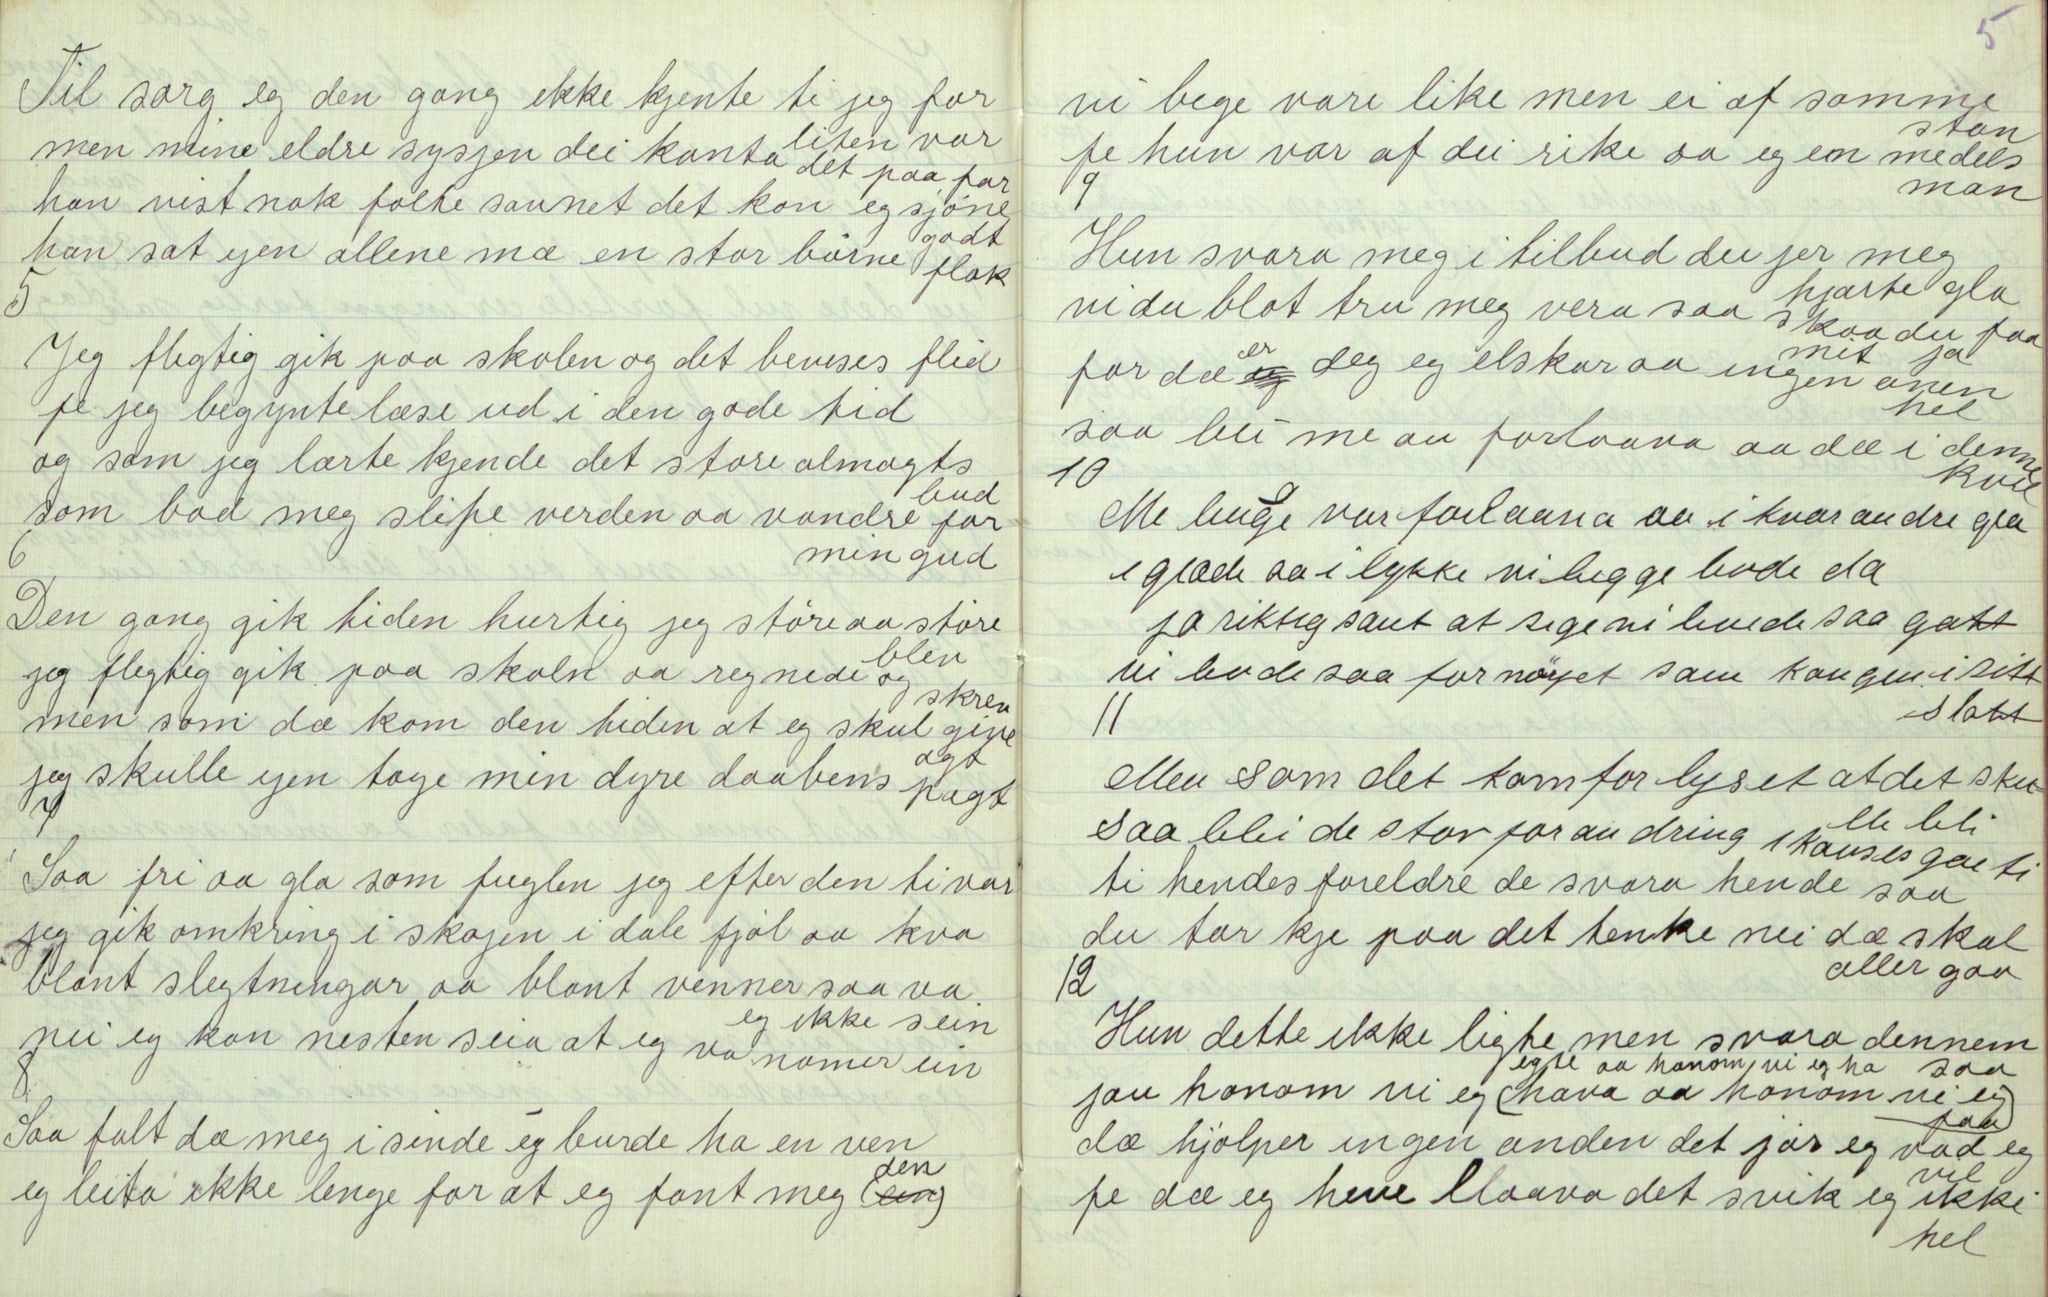 Til sorg eg den gang ikke kjente ti jeg for
liten var
men mine eldre sysjen dei kanta det paa far
han vist nok folte savnet det kan eg sjöne
godt
han sat igen allene mæ en stor börne flok
5
Jeg flegtig gik paa skolen og det beveses flid
fe jeg begynte læse ud i den gode tid
og som jeg lærte kjende det store almagts
bud
som bad meg slipe verden aa vandre for
min gud
6
Den gang gik tiden hurtig jeg störe aa störe
blev
jeg flegtig gik paa skoln aa regnede og
skrev
men som dæ kom den tiden at eg skul give
agt
jeg skulle igen tage min dyre daabens pagt
7
Saa fri aa gla som fuglen jeg efter den ti var
jeg gik omkring i skogen i dale fjöl aa kva
blant slegtningar aa blant venner saa va
eg ikke sein
nei eg kan nesten seia at eg va nomer ein
8
Saa falt dæ meg i sinde eg burde ha en ven
eg leita ikke lenge for at eg fant meg (sin) den
5
vi bege vare like men ei af samme
stan
fe hun var af dei rike aa eg en medels
man
9
Hun svara meg i tilbud du jer meg
hjarte gla
vi du blot tru meg vera saa skaa du faa
mit ja
for dæ er deg eg elskar aa ingen anen
hel
saa blei me au forlaava aa dæ i denne
kvel
10
Me beage var forlaava aa i kvarandre gla
i glæde aa i lykke vi begge levde da
ja riktig sant at sige vi levede saa gott
vi levde saa fornöyet som kongen i sitt
slott
11
Men som det kom for lyset at det sku-
lle bli
saa blei de stor forandring i kauses gae ti
ti hendes foreldre de svara hende saa
du tar kje paa det tenke nei dæ skal
aller gaa
12
Hun dette ikke ligte men svara dennem
saa
jau honom vi eg (hava aa honom vi eg faa) egte aa honom vi eg ha
dæ hjolper ingen anden det jör eg vad eg
vil
fe dæ eg heve llaava det svik eg ikki
hel